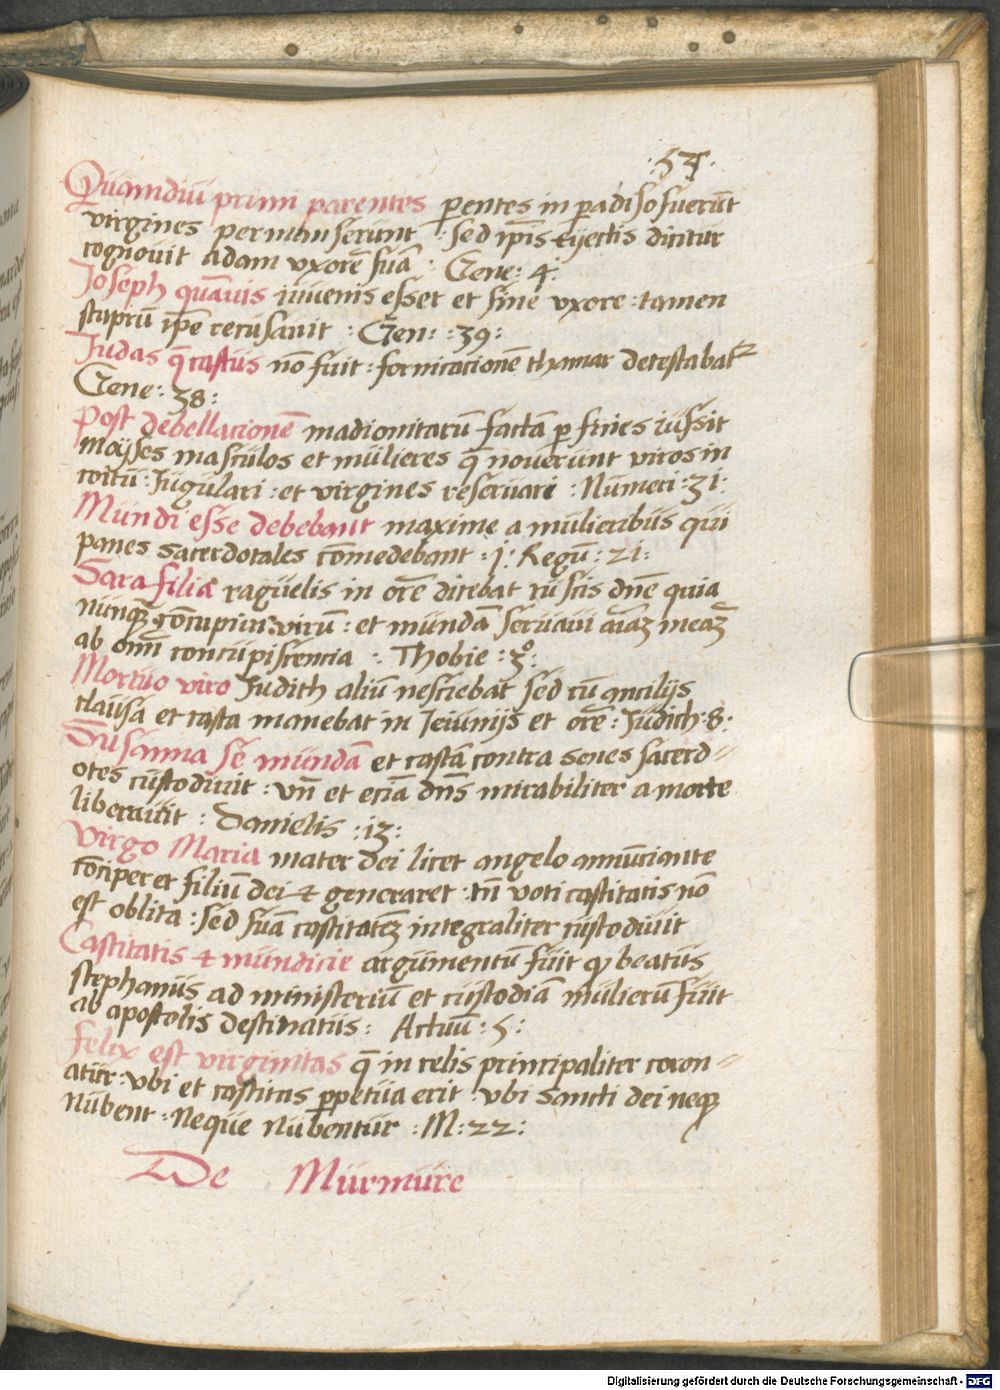 ·53·
Quamdiu primi parentes pentes in padiso fuerūt
virgines permanserunt : sed ip̄is eyectis dicitur
cognovit Adam vxorē suā : Gene: 4:
Joseph quāuis iuuenis esset et sine vxore : tamen
stuprū ip̄e recusauit : Gen: :39:
Judas q̄ castus nō fuit : fornicacionē thamar detestabat
Gene: 38:
Post debellacionē madionitarū factā p fines iussit
moyses masculos et mulieres q̄ nouerunt viros in
coitu : Jugulari : et virgines reseruari : Numeri :31:
Mundi esse debebant maxime a mulieribus qui
panes sacerdotales cōmedebant : j: Regū: 21:
Sara filia raguelis in orē dicebat tu scis dn̄e quia
nunq̄ cōcupiui virū : et mundā seruaui aīaz meaz
ab omī concupiscencia : Thobie :3º:
Mortuo viro Judith aliū nesciebat sed cū ancilijs
clausa et casta manebat in Jeiunijs et orē : Judith·8·
Susanna se mundā et castā contra senes sacerd=
otes custodiuit : vn̄ et eciā dn̄s mirabiliter a morte
liberauit : Danielis :13:
Virgo Maria mater dei licet angelo annūciante
cōciperet filiū dei & generaret : tn̄ voti castitatis nō
est oblita : sed suā castitatēz integraliter custodiuit
Castitatis & mundicie argumentū fuit qȝ beatus
stephanus ad ministeriū et custodiā mulierū fuit
ab apostolis destinatus : Actuū :5:
Felix est virginitas q̄ in celis principaliter coron=
atur : vbi et castitas ppetua erit : vbi sancti dei neqȝ
nubent : neque nubentur : M: 22:
De Murmure
Digitalisierung gefördert durch die Deutsche Forschungsgemeinschaft - DFG